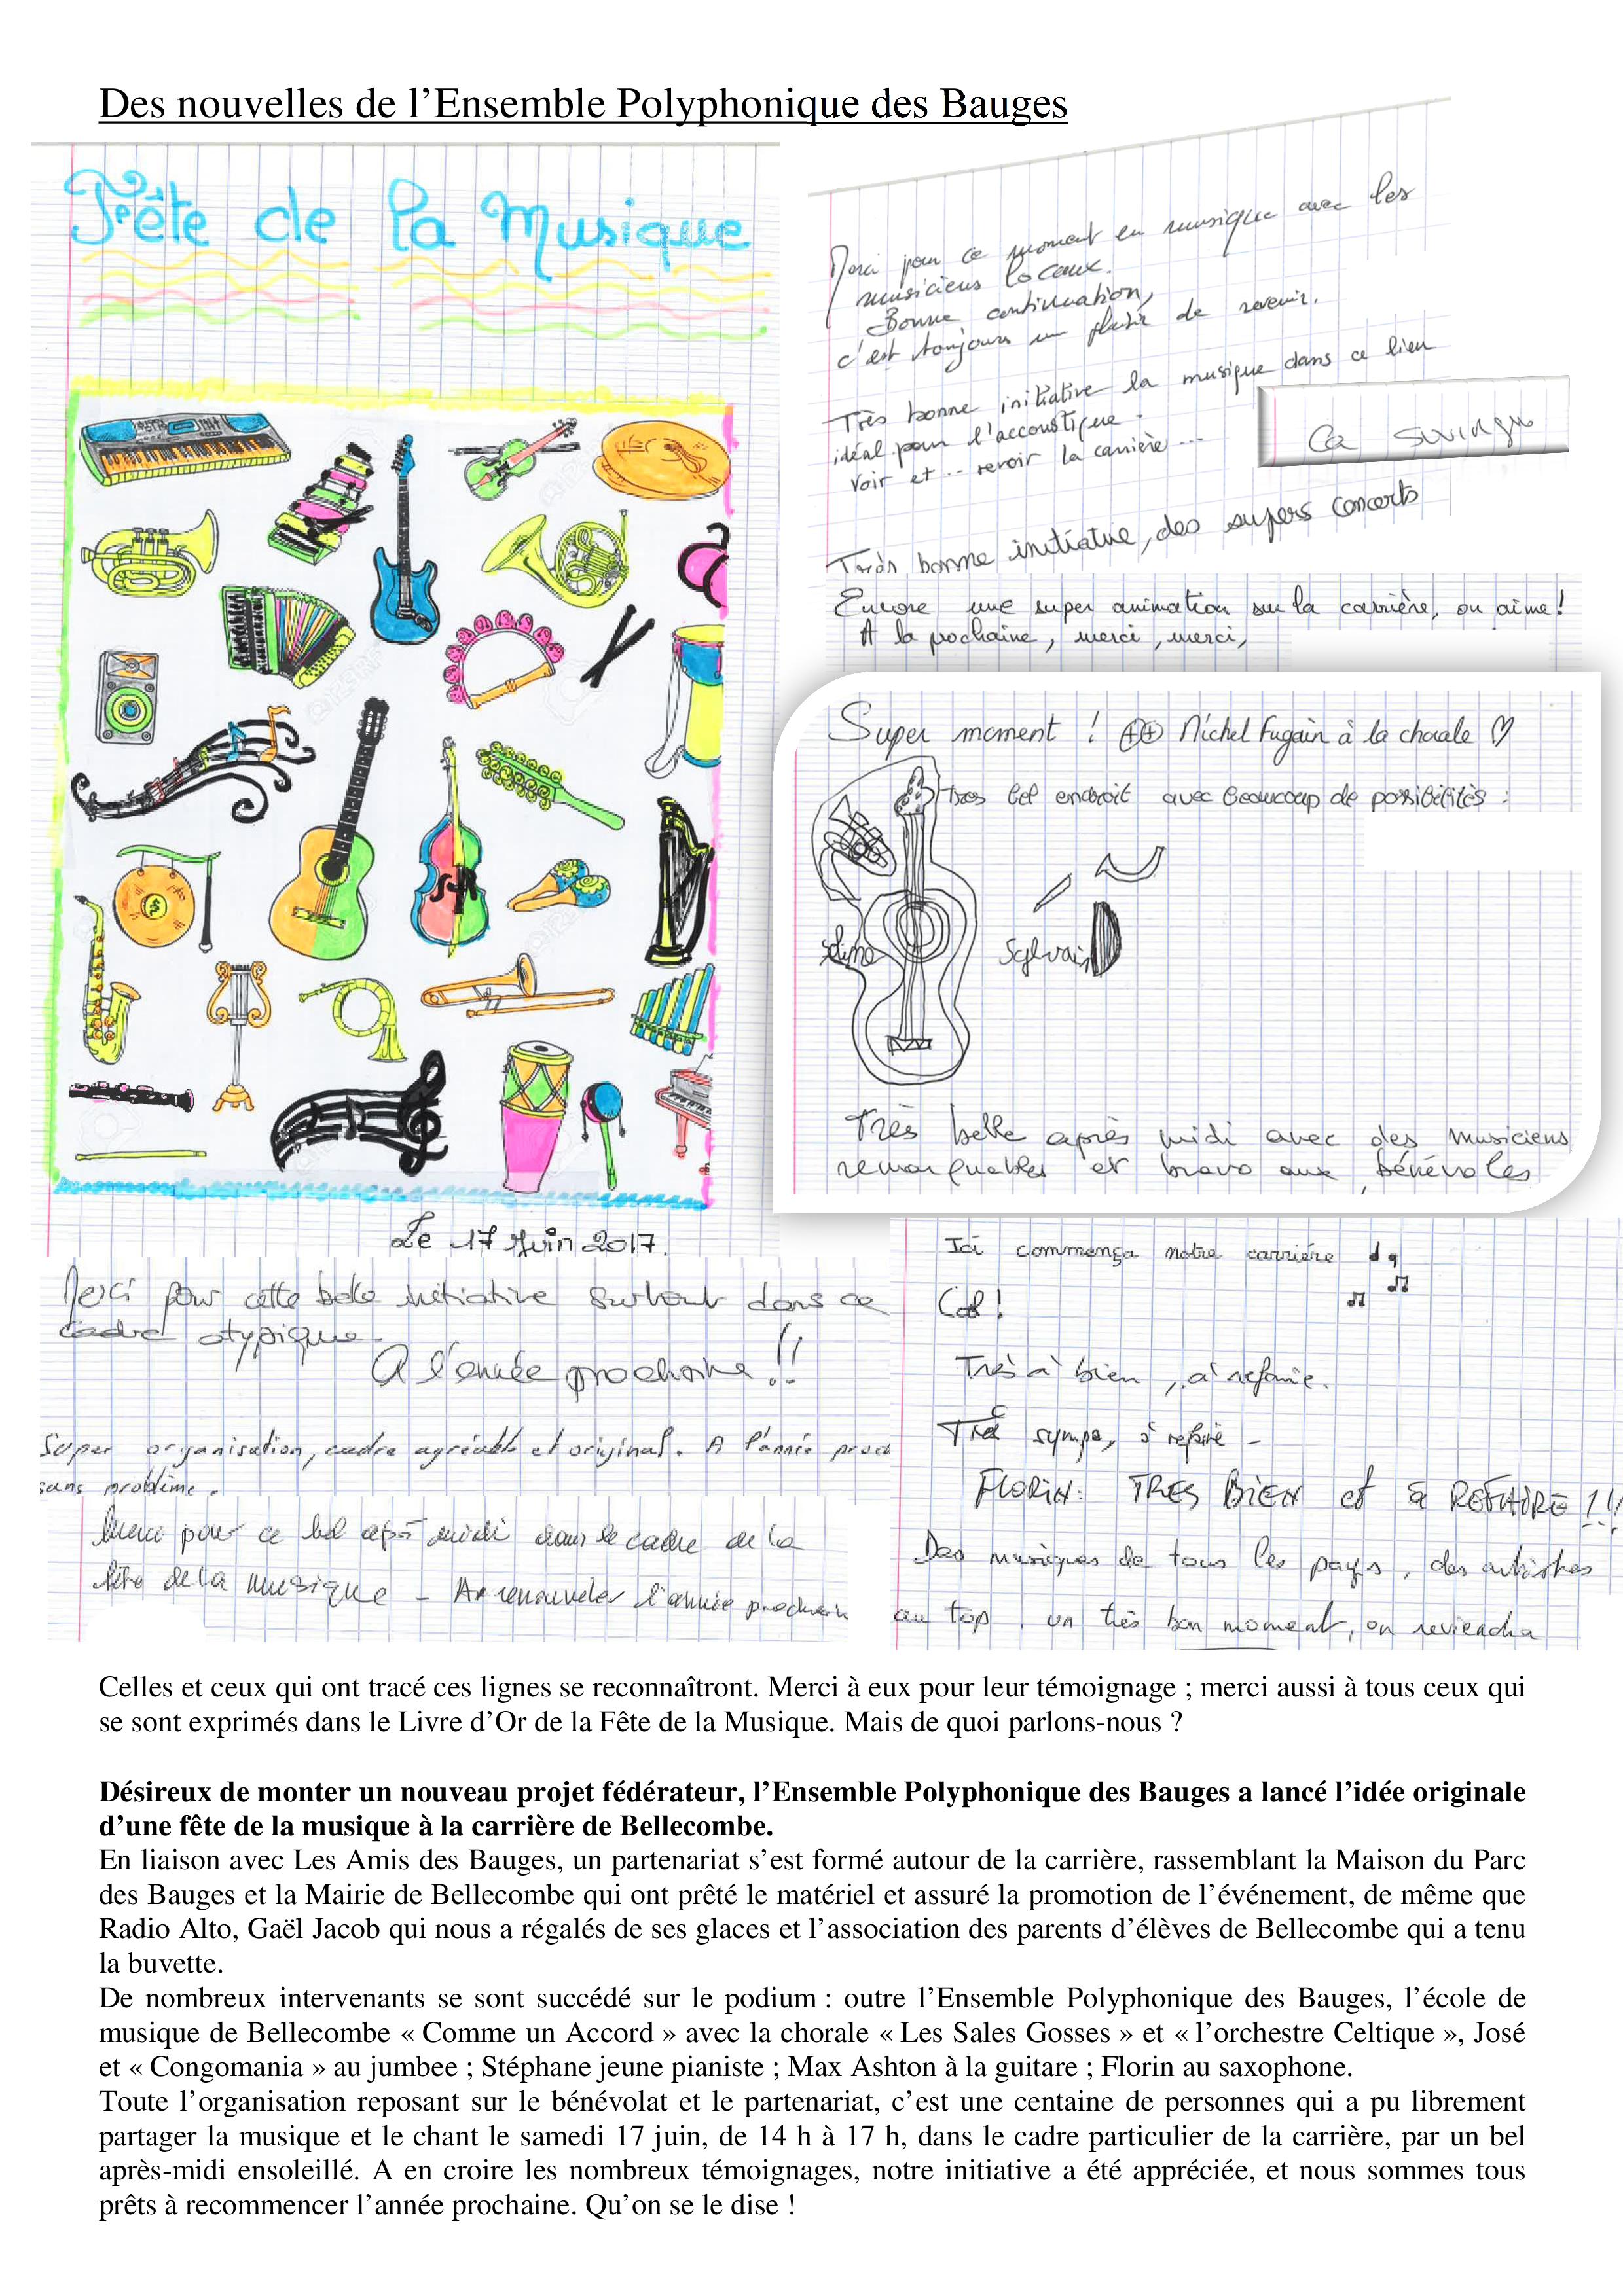 Des nouvelles de l’Ensemble Polyphonique des Bauges
Fête de la Musique
Le 17 Juin 2017.
Merci pour cette belle initiative surtout dans ce
cadre atypique.
A l'année prochaine !!
Super organisation, cadre agréable et original. A l'année proch
sans problème.
Merci pour ce bel après midi dans le cadre de la
fête de la musique - A renouveler l'année prochain
Merci pour ce moment en musique avec les
musiciens locaux.
Bonne continuation,
c'est toujours un plaisir de revenir.
Très bonne initiative la musique dans ce lieu
idéal pour l'accoustique.
Voir et ... revoir la carrière ...
Ca swingue
Très bonne initiative, des supers concerts
Encore une super animation sur la carrière, on aime !
A la prochaine, merci, merci,
Super moment ! ++ Michel Fugain à la chorale ♡
Très bel endroit avec beaucoup de possibilités :
Sylvain
Très belle après midi avec des musiciens
remarquables et bravo aux bénévoles
Ici commença notre carrière
Très bien, à refaire.
Très sympa, à refaire -
FLORIN : TRES BIEN et à REFAIRE !!!
Des musiques de tous les pays, des artistes
au top, un très bon moment, on reviendra
Celles et ceux qui ont tracé ces lignes se reconnaîtront. Merci à eux pour leur témoignage ; merci aussi à tous ceux qui
se sont exprimés dans le Livre d’Or de la Fête de la Musique. Mais de quoi parlons-nous ?
Désireux de monter un nouveau projet fédérateur, l’Ensemble Polyphonique des Bauges a lancé l’idée originale
d’une fête de la musique à la carrière de Bellecombe.
En liaison avec Les Amis des Bauges, un partenariat s’est formé autour de la carrière, rassemblant la Maison du Parc
des Bauges et la Mairie de Bellecombe qui ont prêté le matériel et assuré la promotion de l’événement, de même que
Radio Alto, Gaël Jacob qui nous a régalés de ses glaces et l’association des parents d’élèves de Bellecombe qui a tenu
la buvette.
De nombreux intervenants se sont succédé sur le podium : outre l’Ensemble Polyphonique des Bauges, l’école de
musique de Bellecombe « Comme un Accord » avec la chorale « Les Sales Gosses » et « l’orchestre Celtique », José
et « Congomania » au jumbee ; Stéphane jeune pianiste ; Max Ashton à la guitare ; Florin au saxophone.
Toute l’organisation reposant sur le bénévolat et le partenariat, c’est une centaine de personnes qui a pu librement
partager la musique et le chant le samedi 17 juin, de 14 h à 17 h, dans le cadre particulier de la carrière, par un bel
après-midi ensoleillé. A en croire les nombreux témoignages, notre initiative a été appréciée, et nous sommes tous
prêts à recommencer l’année prochaine. Qu’on se le dise !